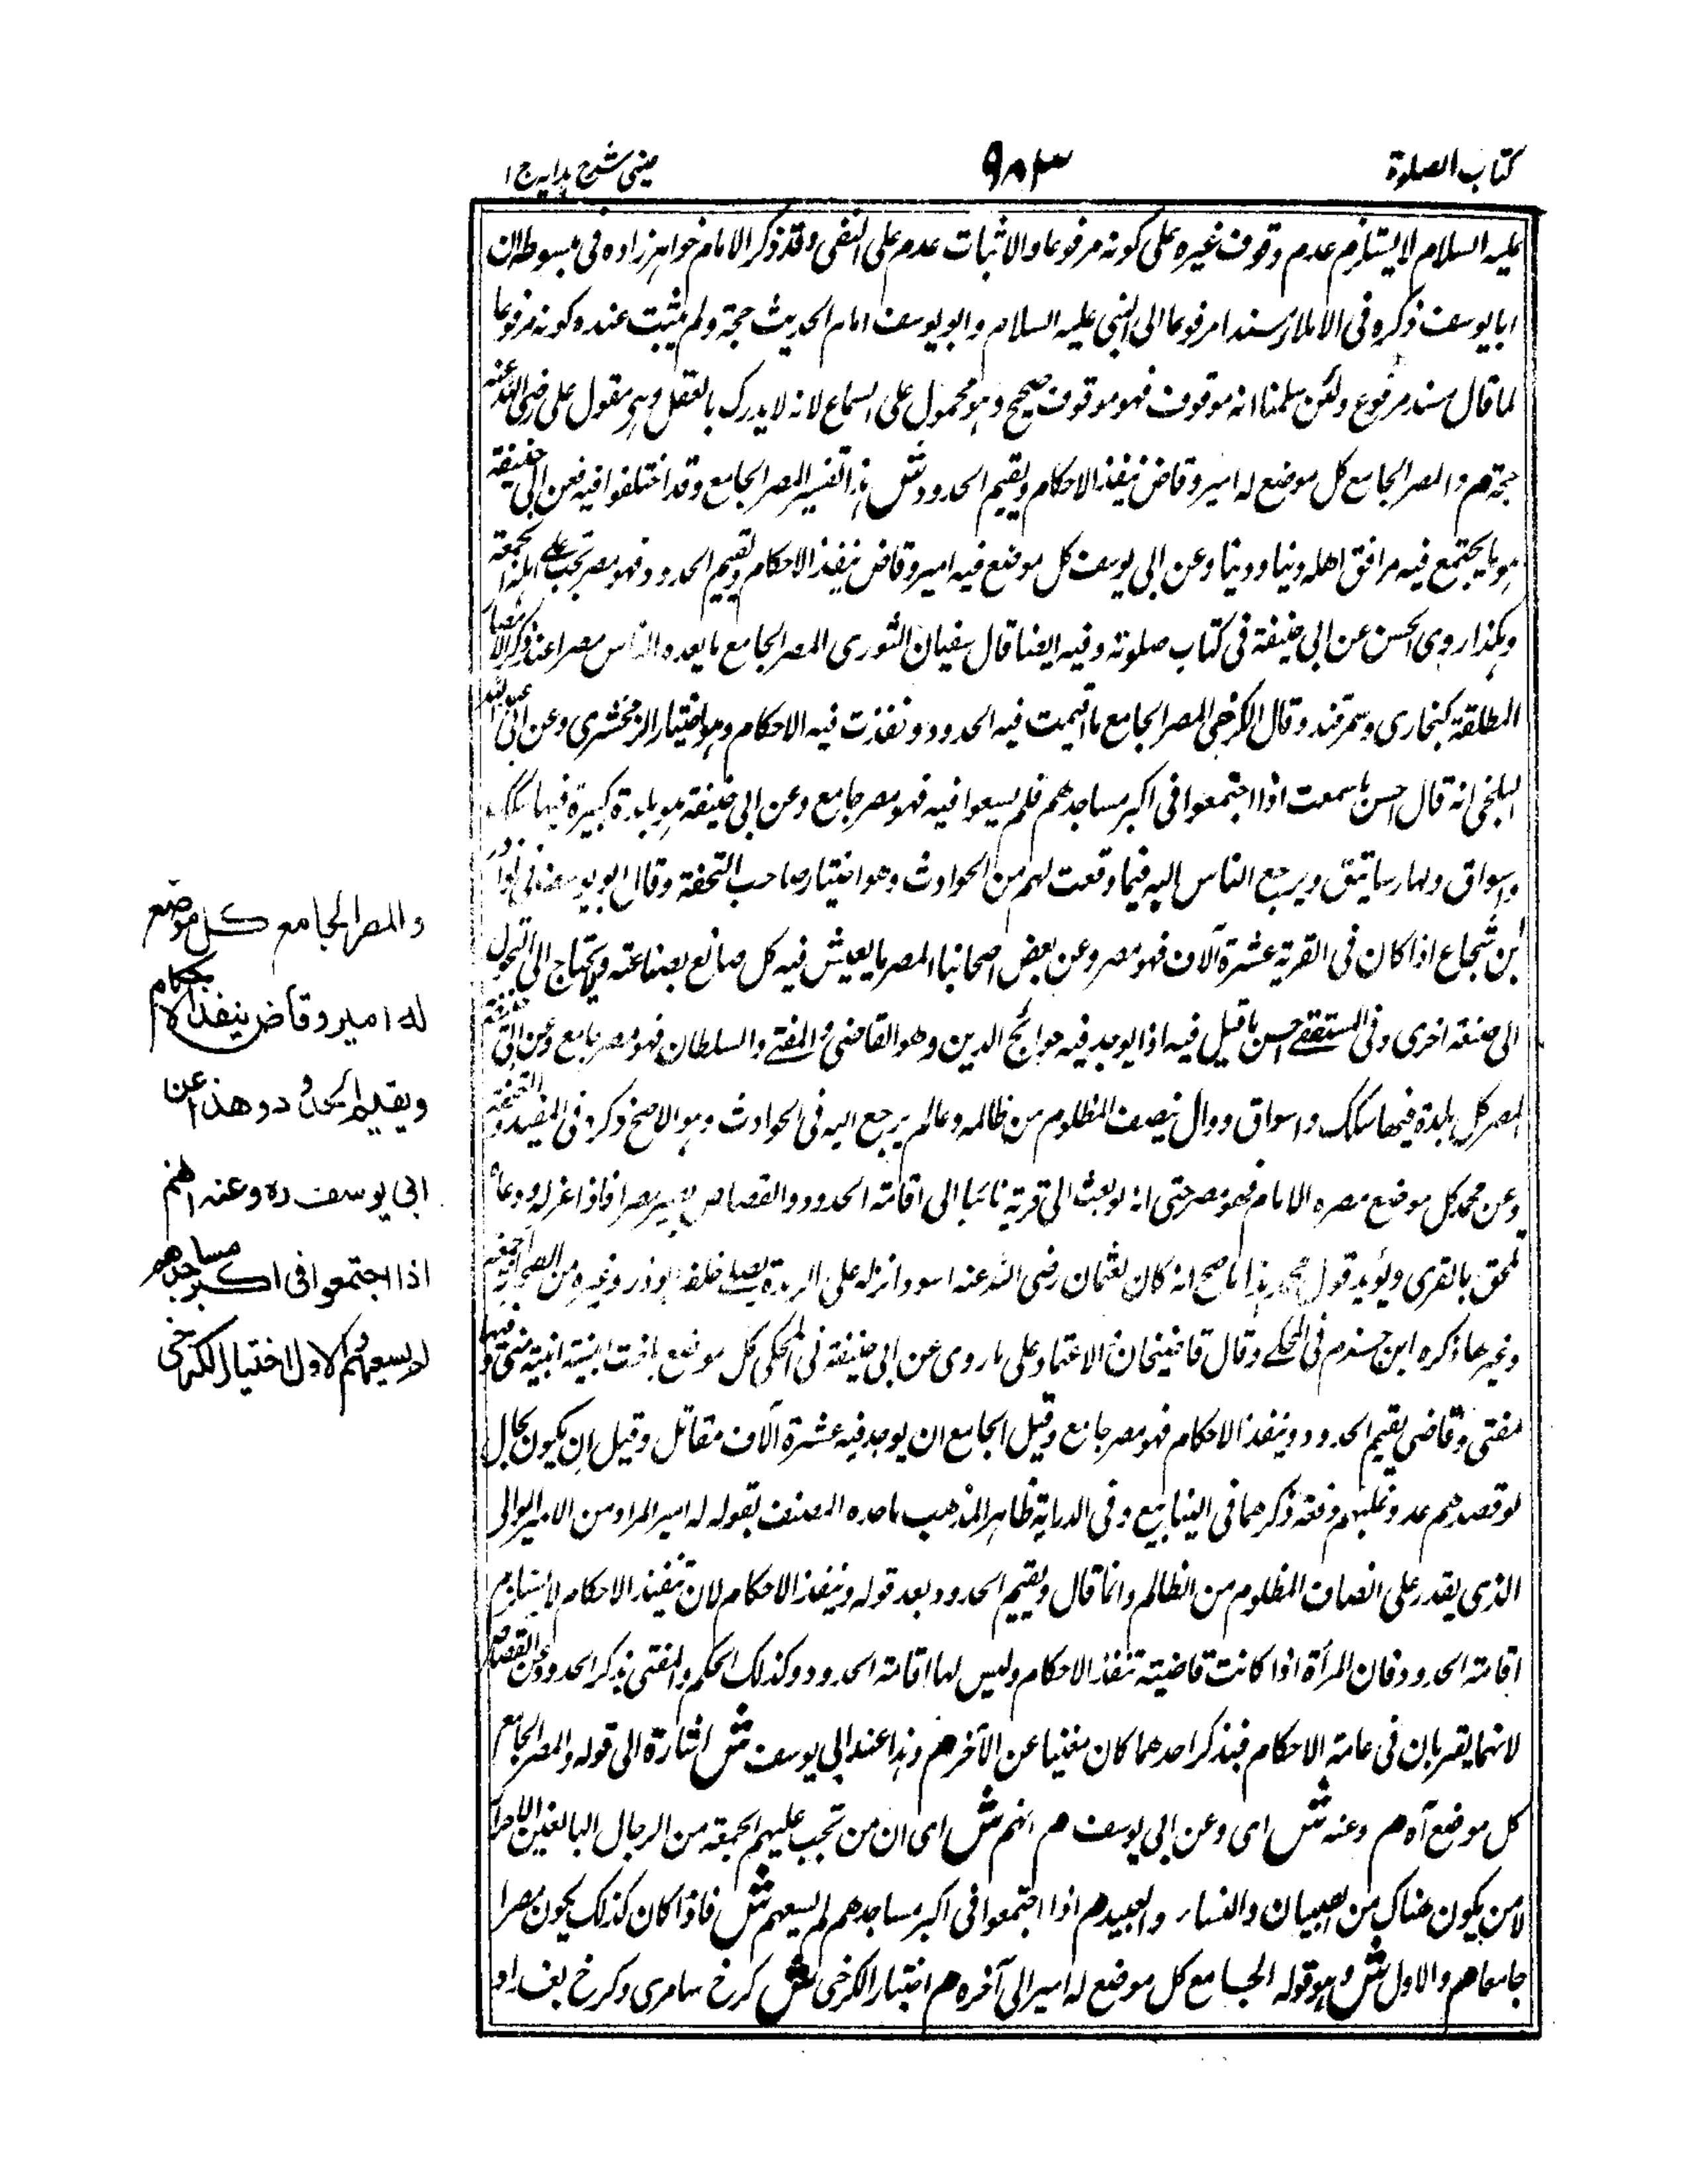 كتاب الصلوة
٩٨٣
عينى شرح هدايه ج ١
عليه السلام لا يستلزم عدم وقوف غيره على كونه مرفوعا والاثبات مقدم على النفى وقد ذكر الامام خواهر زاده فى مبسوطه ان
ابا يوسف ذكره فى الاملاء مسندا مرفوعا الى النبى عليه السلام وابو يوسف امام الحديث حجة ولو لم يثبت عنده كونه مرفوعا
لما قال مسند مرفوع ولئن سلمنا انه موقوف فهو موقوف صحيح وهو محمول على السماع لانه لا يدرك بالعقل وهى مقول على رضى الله عنه
حجة م والمصر الجامع كل موضع له امير وقاض ينفذ الاحكام ويقيم الحدود ش هذا تفسير المصر الجامع وقد اختلفوا فيه فعن ابى حنيفة
هو ما يجتمع فيه مرافق اهله دنيا ودينا وعن ابى يوسف كل موضع فيه امير وقاض ينفذ الاحكام ويقيم الحدود فهو مصر تجب على اهله الجمعة
وهكذا روى الحسن عن ابى حنيفة فى كتاب صلوته وفيه ايضا قال سفيان الثورى المصر الجامع ما يعده الناس مصرا عند ذكر الامصار
المطلقة كبخارى وسمرقند وقال الكرخى المصر الجامع ما اقيمت فيه الحدود ونفذت فيه الاحكام وهو اختيار الزمخشرى وعن ابى عبد الله
البلخى انه قال احسن ما سمعت اذا اجتمعوا فى اكبر مساجدهم فلم يسعوا فيه فهو مصر جامع وعن ابى حنيفة هو بلدة كبيرة فيها سكك
واسواق ولها رساتيق ويرجع الناس اليه فيما وقعت لهم من الحوادث وهو اختيار صاحب التحفة وقال ابو يوسف فى نوادر
ابن شجاع اذا كان فى القرية عشرة آلاف فهو مصر وعن بعض اصحابنا المصر ما يعيش فيه كل صانع بصناعته ولا يحتاج الى التحول
الى صنعة اخرى وفى المستقصى احسن ما قيل فيه اذا يوجد فيه حوائج الدين وهو القاضى والمفتى والسلطان فهو مصر جامع وعن ابى حنيفة
المصر كل بلدة فيها سكك واسواق ووال ينصف المظلوم من ظالمه وعالم يرجع اليه فى الحوادث وهو الاصح ذكره فى المفيد والتحفة
وعن محمد كل موضع مصره الامام فهو مصر حتى انه لو بعث الى قرية نائبا الى اقامة الحدود والقصاص يصير مصرا فاذا عزله ودعاه
تلحق بالقرى ويؤيد قول محمد هذا ما صح انه كان لعثمان رضى الله عنه اسود انزله على الربذة يصلى خلفه ابوذر وغيره من الصحابة الجمعة
وغيرها ذكره ابن حزم فى المحلى وقال قاضيخان الاعتماد على ما روى عن ابى حنيفة فى المحكى كل موضع بلغت ابنيته ابنية منى وفيها
مفتى وقاضى يقيم الحدود وينفذ الاحكام فهو مصر جامع وقيل الجامع ان يوجد فيه عشرة آلاف مقاتل وقيل ان يكون بحال
لو قصدهم عدو غلبهم دفعه ذكرهما فى الينابيع وفى الدراية ظاهر المذهب ما حده المصنف بقوله له امير المراد من الامير الوالى
الذى يقدر على انصاف المظلوم من الظالم وانما قال ويقيم الحدود بعد قوله وينفذ الاحكام لان تنفيذ الاحكام لا يستلزم
اقامة الحدود فان المرأة اذا كانت قاضية تنفذ الاحكام وليس لها اقامة الحدود وكذلك الحكم واكتفى بذكر الحدود عن القصاص
لانهما يقتربان فى عامة الاحكام فبذكر احدهما كان مغنيا عن الآخر م وهذا عند ابى يوسف ش اشارة الى قوله والمصر الجامع
كل موضع آه م وعنه ش اى وعن ابى يوسف م انهم ش اى ان من تجب عليهم الجمعة من الرجال البالغين الاحرار
لا من يكون هناك من الصبيان والنساء والعبيد م اذا اجتمعوا فى اكبر مساجدهم لم يسعهم ش فاذا كان كذلك يكون مصرا
جامعا م والاول ش وهو قوله الجامع كل موضع له امير الى آخره م اختيار الكرخى ش كرخ سامرى وكرخ بغداد
والمصر الجامع كل موضع
له امير وقاض ينفذ الاحكام
ويقيم الحدود وهذا عن
ابى يوسف ره وعنه انهم
اذا اجتمعوا فى اكبر مساجدهم
لم يسعهم والاول اختيار الكرخى